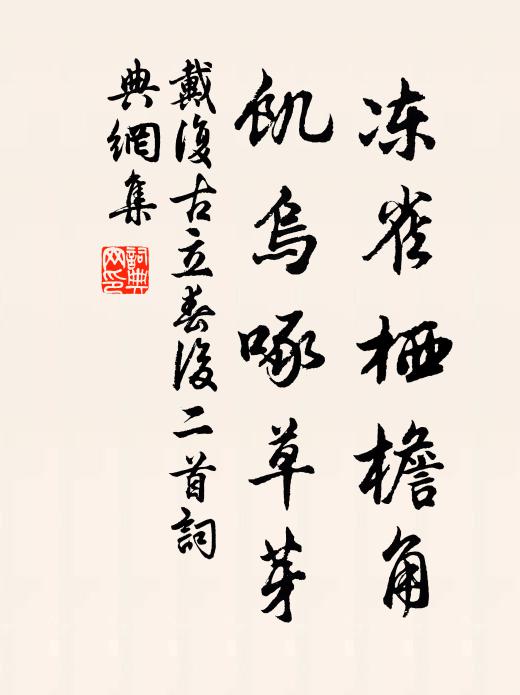 冻雀栖檐角
飢烏啄草芽
戴復古立春後二首詞
典網集
詞典
网印